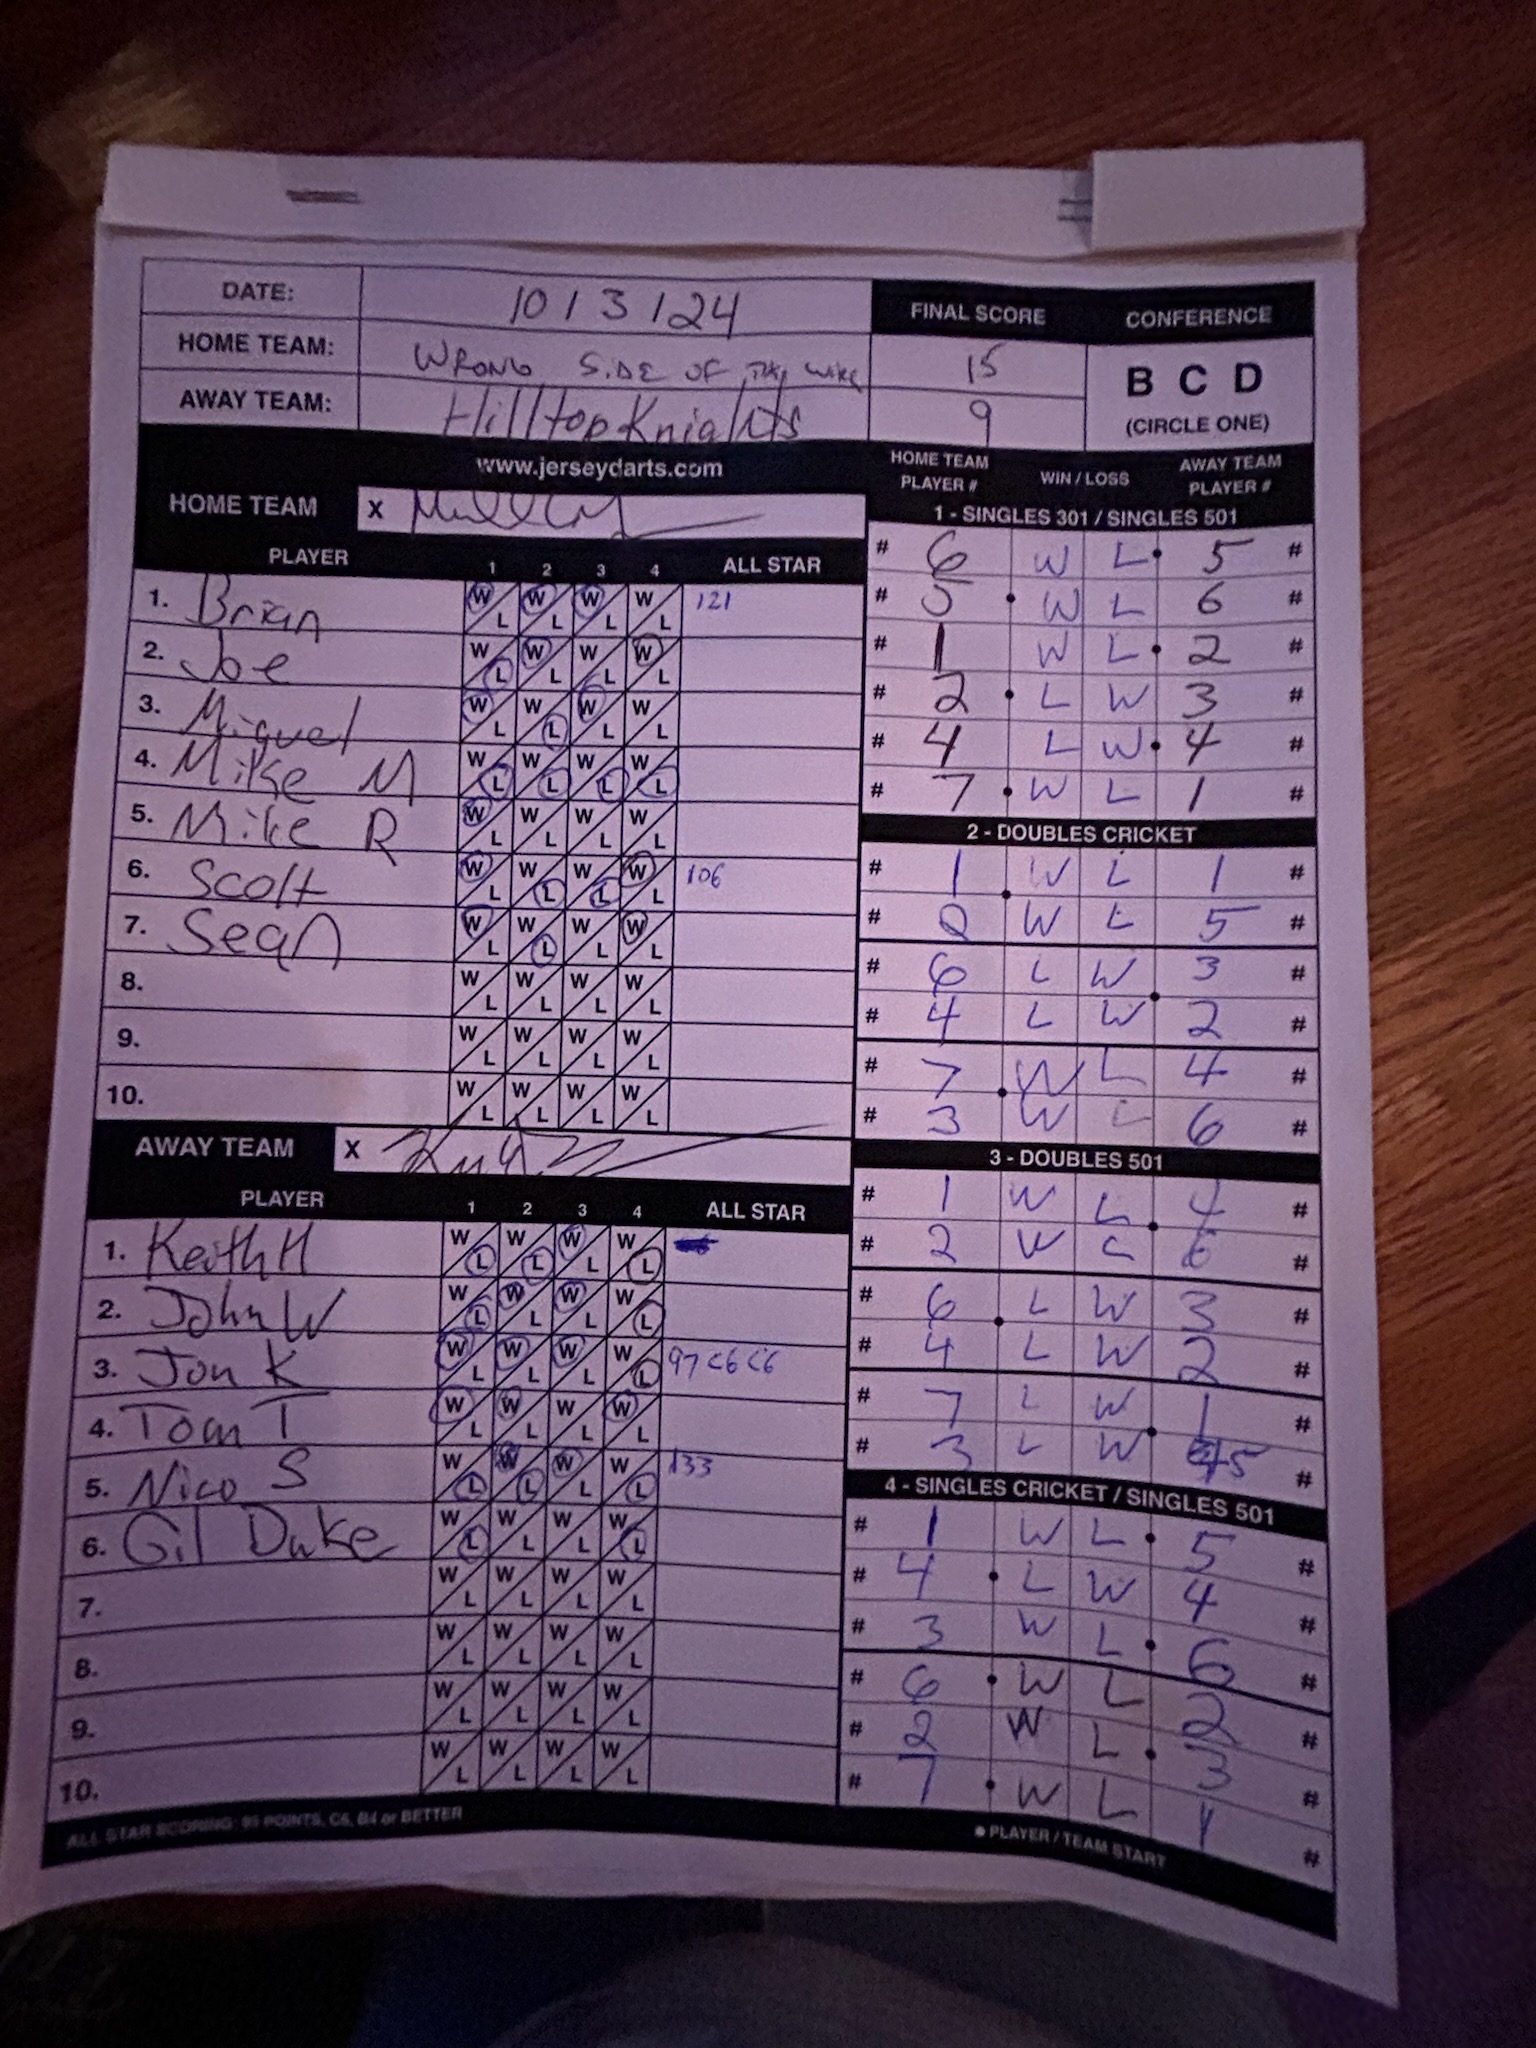 DATE: 10/3/24 FINAL SCORE CONFERENCE
HOME TEAM: WRONG SIDE OF THE WIRE 15 B C D
AWAY TEAM: Hilltop Knights 9 (CIRCLE ONE)
www.jerseydarts.com HOME TEAM PLAYER # WIN / LOSS AWAY TEAM PLAYER #
HOME TEAM X
PLAYER 1 2 3 4 ALL STAR
1. Brian W L W L W L W L 121
2. Joe W L W L W L W L
3. Miguel W L W L W L W L
4. Mike M W L W L W L W L
5. Mike R W L W L W L W L
6. Scott W L W L W L W L 106
7. Sean W L W L W L W L
8. W L W L W L W L
9. W L W L W L W L
10. W L W L W L W L
AWAY TEAM X
PLAYER 1 2 3 4 ALL STAR
1. Keith H W L W L W L W L
2. John W W L W L W L W L
3. Jon K W L W L W L W L 97 C6 C6
4. Tom T W L W L W L W L
5. Nico S W L W L W L W L 133
6. Gil Duke W L W L W L W L
7. W L W L W L W L
8. W L W L W L W L
9. W L W L W L W L
10. W L W L W L W L
ALL STAR SCORING: 95 POINTS, C6, B4 or BETTER
1 - SINGLES 301 / SINGLES 501
# 6 W L 5 #
# 5 W L 6 #
# 1 W L 2 #
# 2 L W 3 #
# 4 L W 4 #
# 7 W L 1 #
2 - DOUBLES CRICKET
# 1 W L 1 #
# 2 W L 5 #
# 6 L W 3 #
# 4 L W 2 #
# 7 W L 4 #
# 3 W L 6 #
3 - DOUBLES 501
# 1 W L 4 #
# 2 W L 6 #
# 6 L W 3 #
# 4 L W 2 #
# 7 L W 1 #
# 3 L W 5 #
4 - SINGLES CRICKET / SINGLES 501
# 1 W L 5 #
# 4 L W 4 #
# 3 W L 6 #
# 6 W L 2 #
# 2 W L 3 #
# 7 W L 1 #
PLAYER / TEAM START